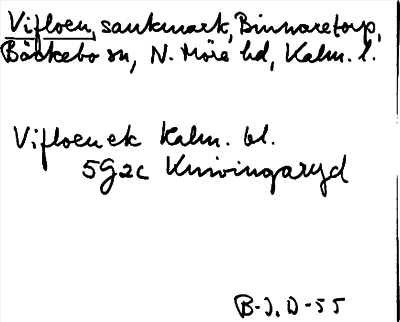 Vifloen, sankmark, Binnaretorp,
Bäckebo sn, N. Möre hd, Kalm. l.
Vifloen ek Kalm. bl.
5G2c Knivingaryd
B-J. D-55